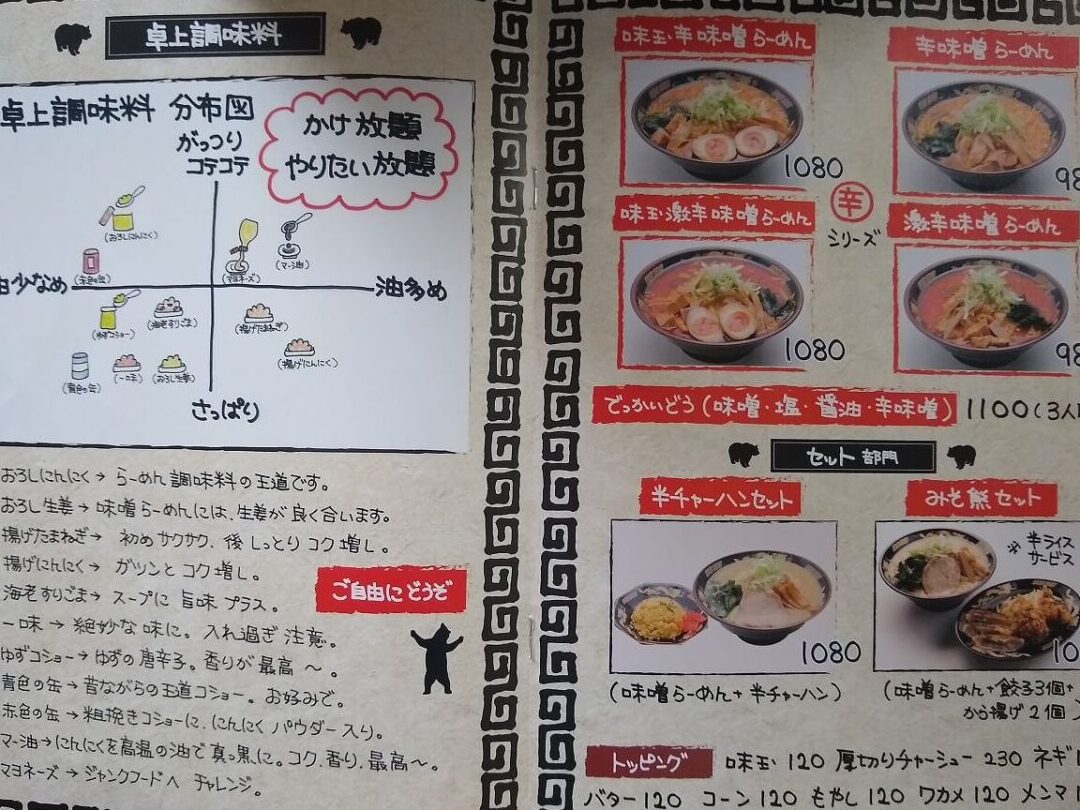 卓上調味料
卓上調味料 分布図
がっつり
コテコテ
かけ放題
やりたい放題
(おろしにんにく)
(赤色の缶)
(マヨネーズ)
(マー油)
油少なめ
油多め
(ゆずコショー)
(海老すりごま)
(揚げたまねぎ)
(青色の缶)
(一味)
(おろし生姜)
(揚げにんにく)
さっぱり
おろしにんにく→らーめん調味料の王道です。
おろし生姜→味噌らーめんには、生姜が良く合います。
揚げたまねぎ→ 初めサクサク、後しっとりコク増し。
揚げにんにく→ ガツンとコク増し。
海老すりごま→ スープに旨味プラス。
一味→絶妙な味に。入れ過ぎ注意。
ゆずコショー→ゆずの唐辛子。香りが最高〜。
青色の缶→昔ながらの王道コショー。お好みで。
赤色の缶→粗挽きコショーに、にんにくパウダー入り。
マー油→にんにくを高温の油で真っ黒に。コク、香り、最高〜。
マヨネーズ→ジャンクフードへ チャレンジ。
ご自由にどうぞ
味玉辛味噌らーめん
1080
辛味噌らーめん
98
辛
シリーズ
味玉激辛味噌らーめん
1080
激辛味噌らーめん
98
でっかいどう(味噌・塩・醤油・辛味噌) 1100(3人
セット部門
半チャーハンセット
1080
(味噌らーめん+半チャーハン)
みそ熊セット
※半ライス
サービス
10
(味噌らーめん+餃子3個+
から揚げ2個)
トッピング 味玉 120 厚切りチャーシュー 230 ネギ
バター120 コーン120 もやし120 ワカメ120 メンマ